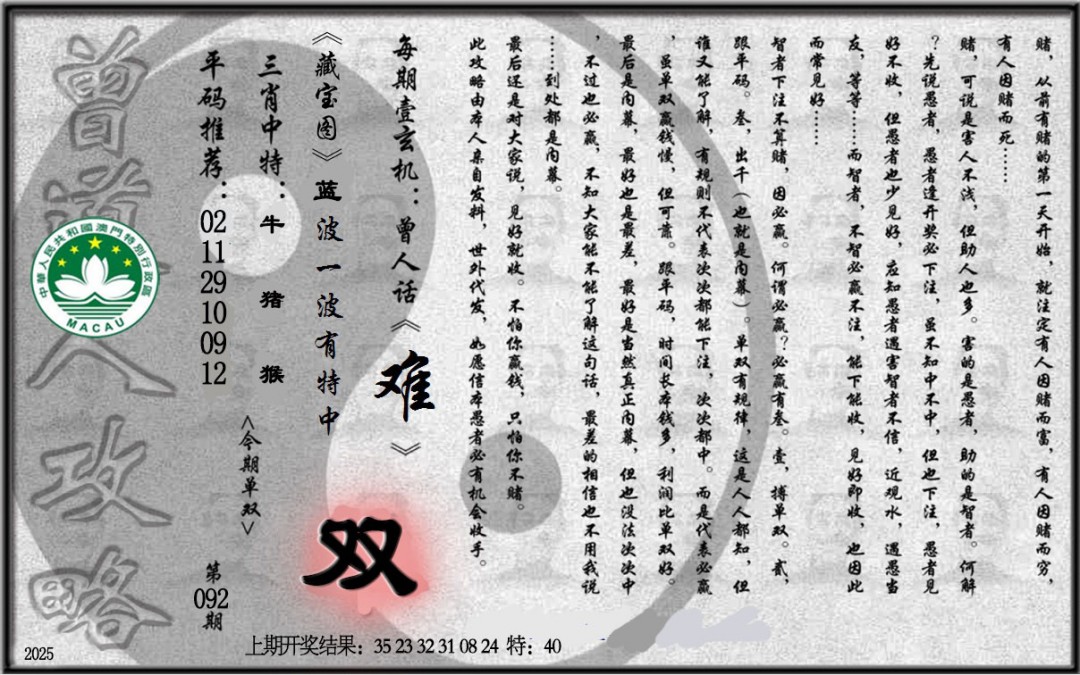 赌，从前有赌的第一天开始，就注定有人因赌而富，有人因赌而穷，
有人因赌而死……
赌，可说是害人不浅，但助人也多。害的是愚者，助的是智者。何解
？先说愚者，愚者逢开奖必下注，虽不知中不中，但也下注，愚者见
好不收，但愚者也少见好，应知愚者遇害智者不信，近观水，遇愚当
友，等等……而智者，不智必赢不注，能下能收，见好即收，也因此
而常见好……
智者下注不算赌，因必赢。何谓必赢？必赢有叁。壹，搏单双。贰，
跟平码。叁，出千（也就是内幕）。单双有规律，这是人人都知，但
谁又能了解，有规则不代表次次都能下注，次次都中。而是代表必赢
，虽单双赢钱慢，但可靠。跟平码，时间长本钱多，利润比单双好。
最后是内幕，最好也是最差，最好是当然真正内幕，但也没法次次中
，不过也必赢，不知大家能不能了解这句话，最差的相信也不用我说
……到处都是内幕。
最后还是对大家说，见好就收。不怕你赢钱，只怕你不赌。
此攻略由本人亲自发料，世外代发，如愿信本愚者必有机会收手。
每期壹玄机：曾人话《难》
《藏宝图》蓝波一波有特中
双
三肖中特：牛 猪 猴
<今期单双>
平码推荐：02 11 29 10 09 12
第092期
曾道人攻略
中華人民共和國澳門特別行政區
MACAU
上期开奖结果：35 23 32 31 08 24 特：40
2025